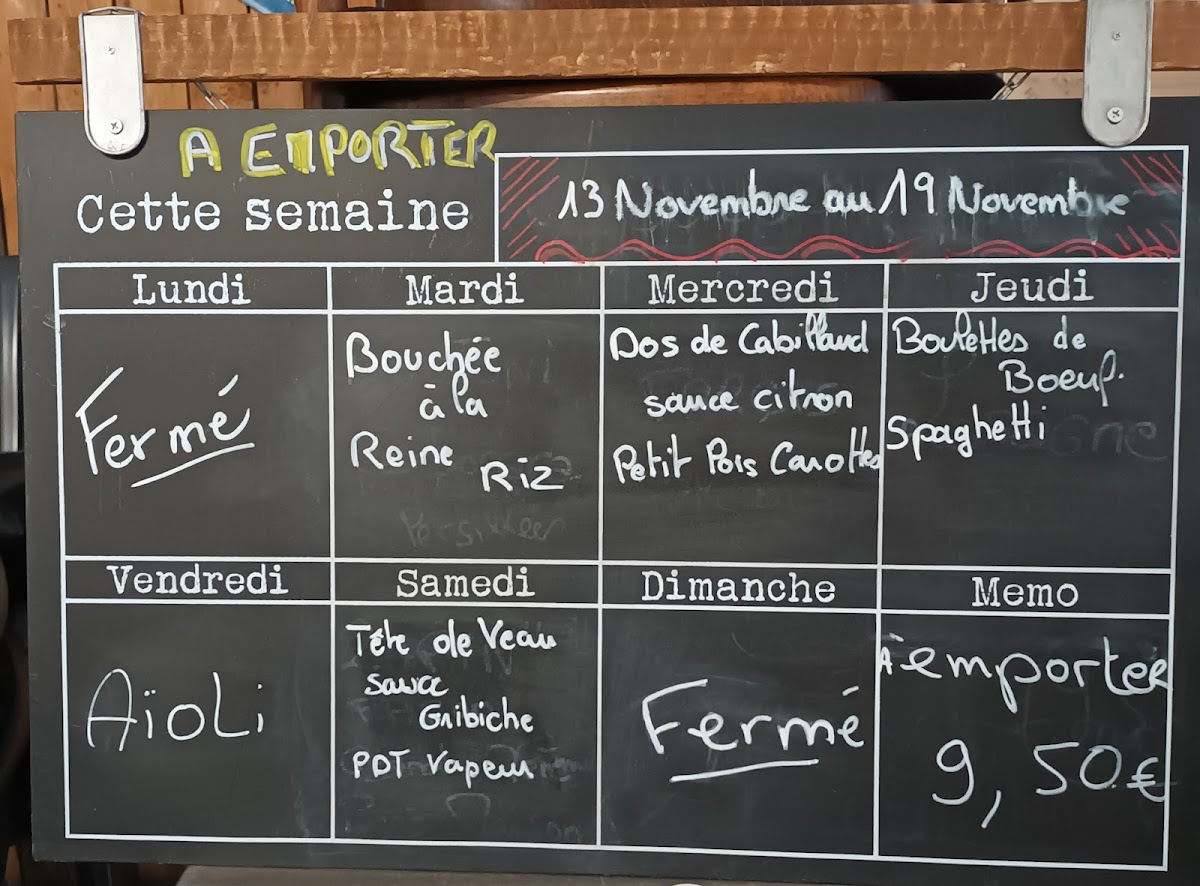 A EMPORTER
Cette semaine
13 Novembre au 19 Novembre
Lundi
Fermé
Mardi
Bouchée
à la
Reine
Riz
Mercredi
Dos de Cabillaud
sauce citron
Petit Pois Carottes
Jeudi
Boulettes de
Boeuf.
Spaghetti
Vendredi
Aïoli
Samedi
Tête de Veau
sauce
Gribiche
PDT vapeur
Dimanche
Fermé
Memo
A emporter
9,50€